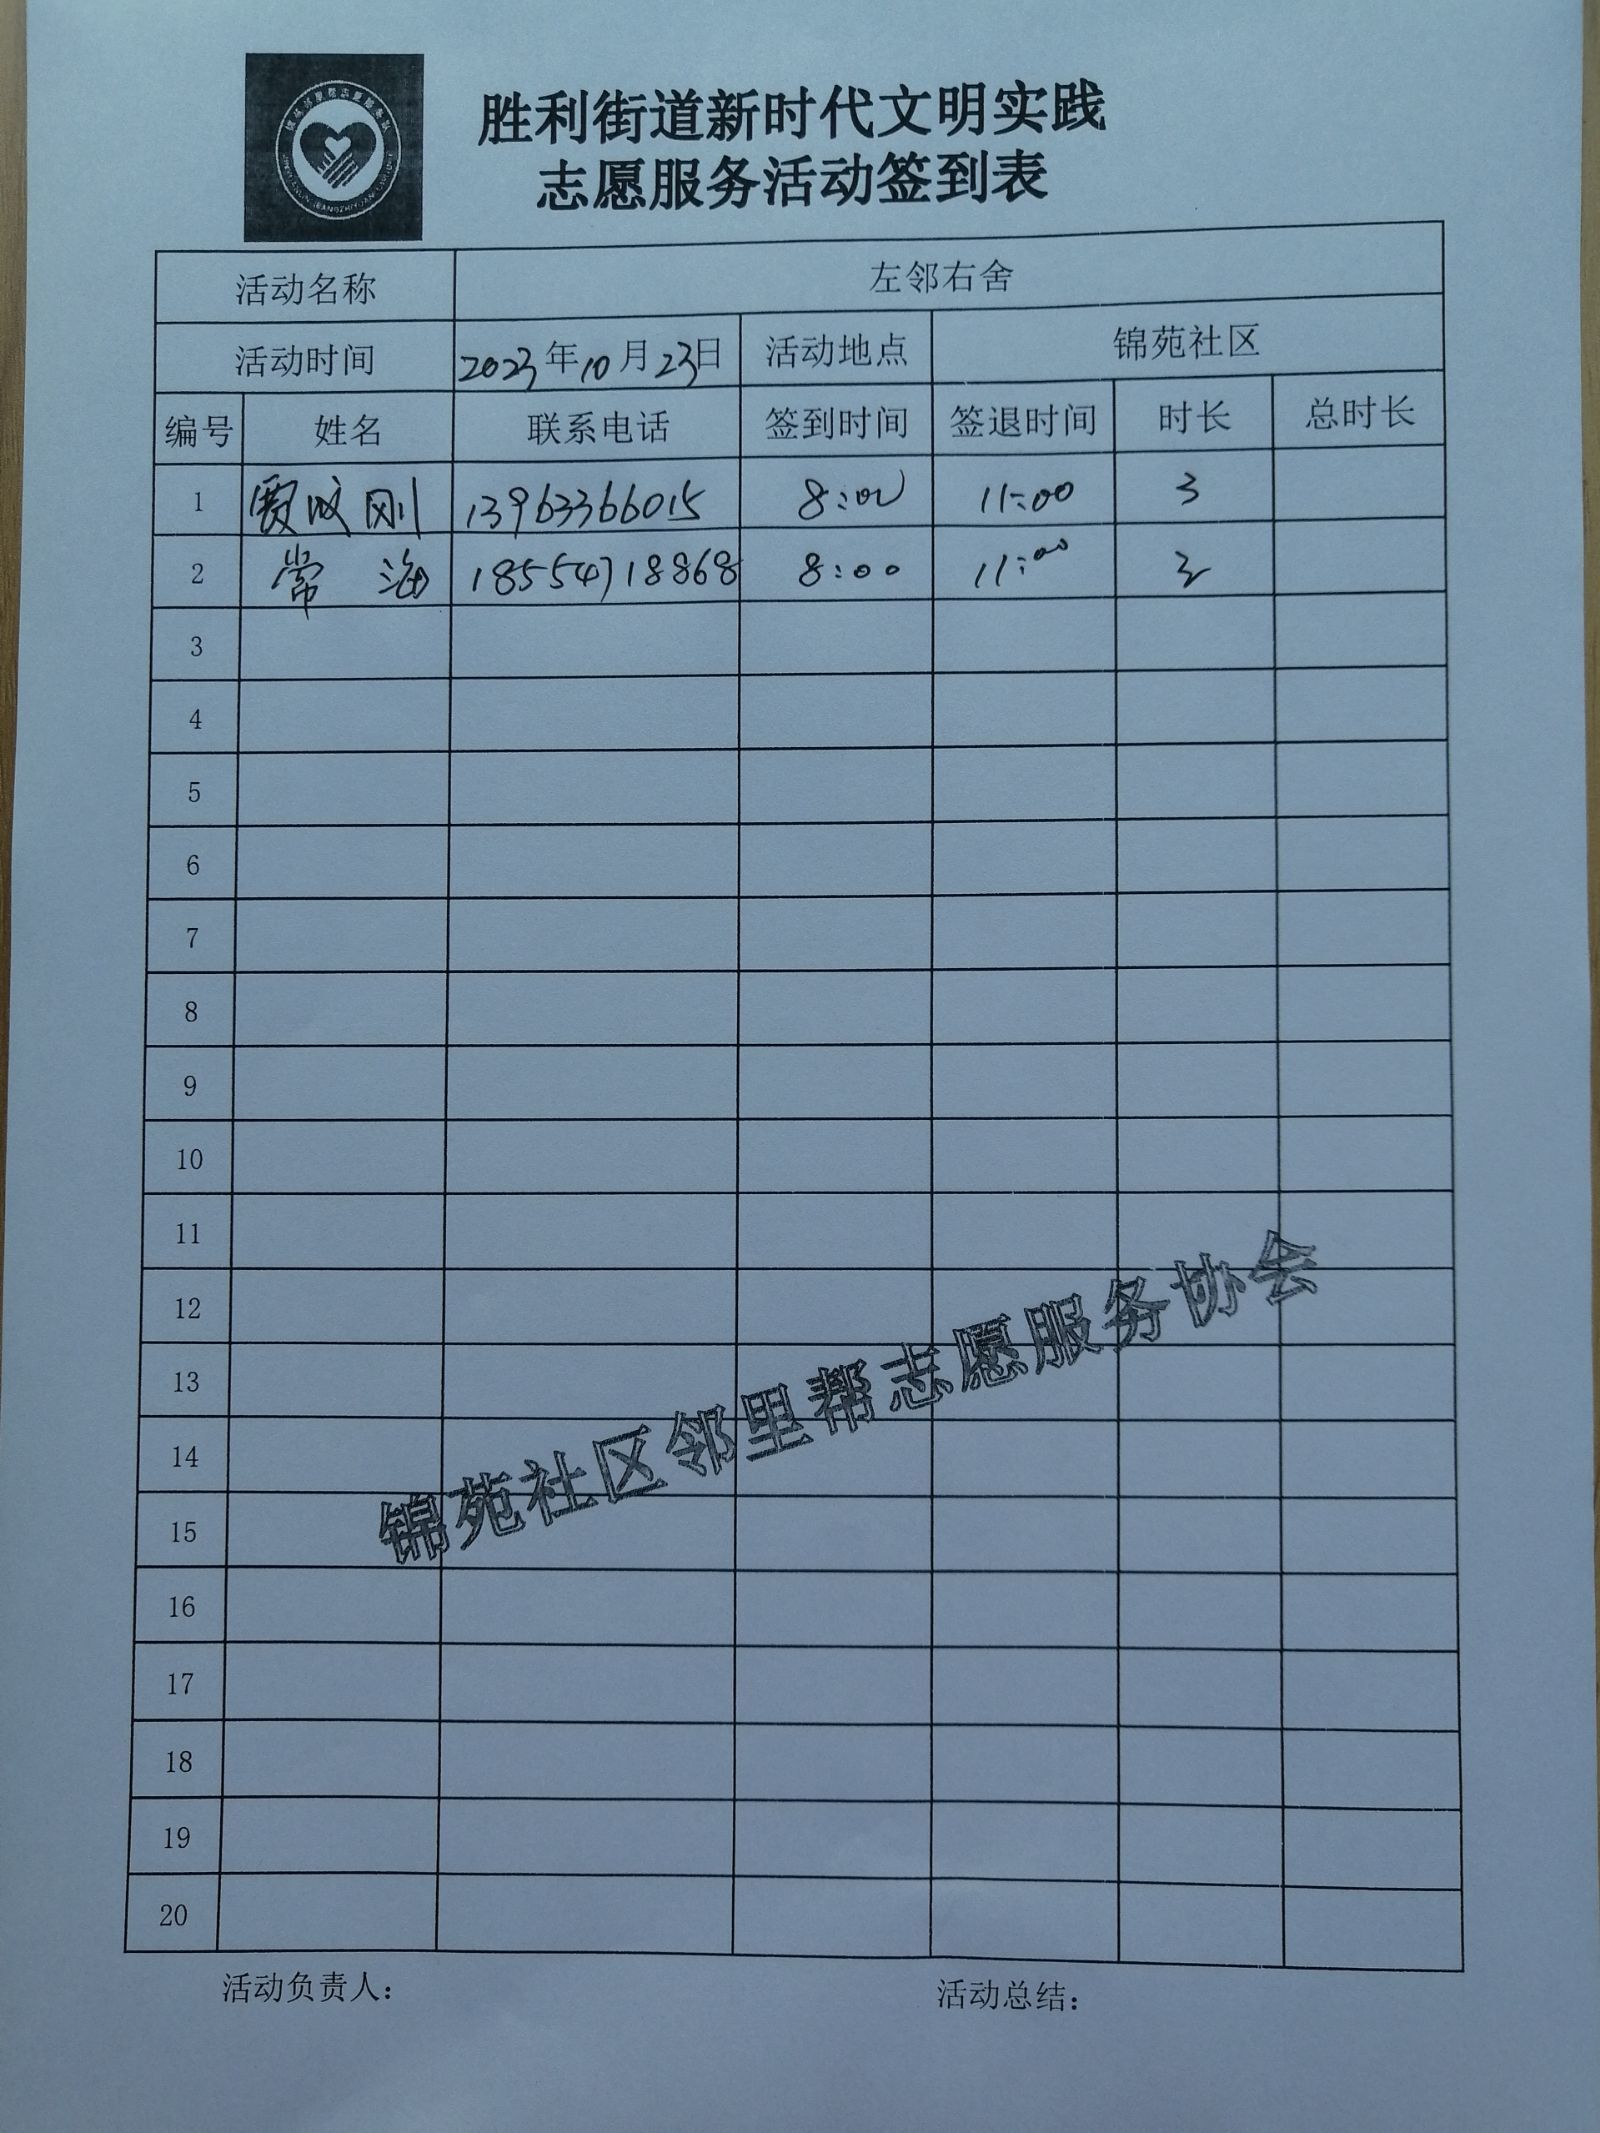 胜利街道新时代文明实践
志愿服务活动签到表
活动名称 左邻右舍
活动时间 2023年10月23日 活动地点 锦苑社区
编号 姓名 联系电话 签到时间 签退时间 时长 总时长
1 贾 刚 13963366015 8:00 11:00 3
2 常海 18554718868 8:00 11:00 3
3
4
5
6
7
8
9
10
11
12
13
14
15
16
17
18
19
20
锦苑社区邻里帮志愿服务协会
活动负责人: 活动总结: